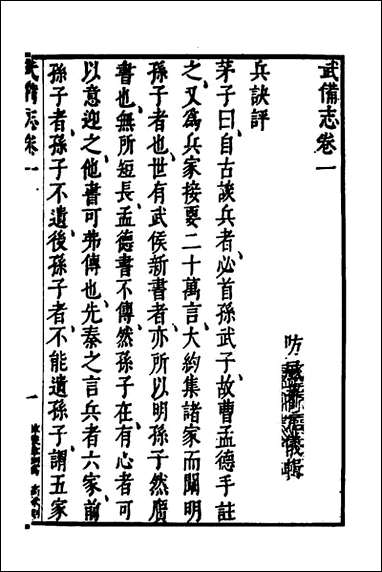 武備志卷一
防風茅元儀輯
兵訣評
茅子曰自古談兵者必首孫武子故曹孟德手註
之又為兵家接要二十萬言大約集諸家而闡明
孫子者也世有武侯新書者亦所以明孫子然廣
書也無所短長孟德書不傳然孫子在有心者可
以意迎之他書可弗傳也先秦之言兵者六家前
孫子者孫子不遺後孫子者不能遺孫子謂五家
武備志卷一
一